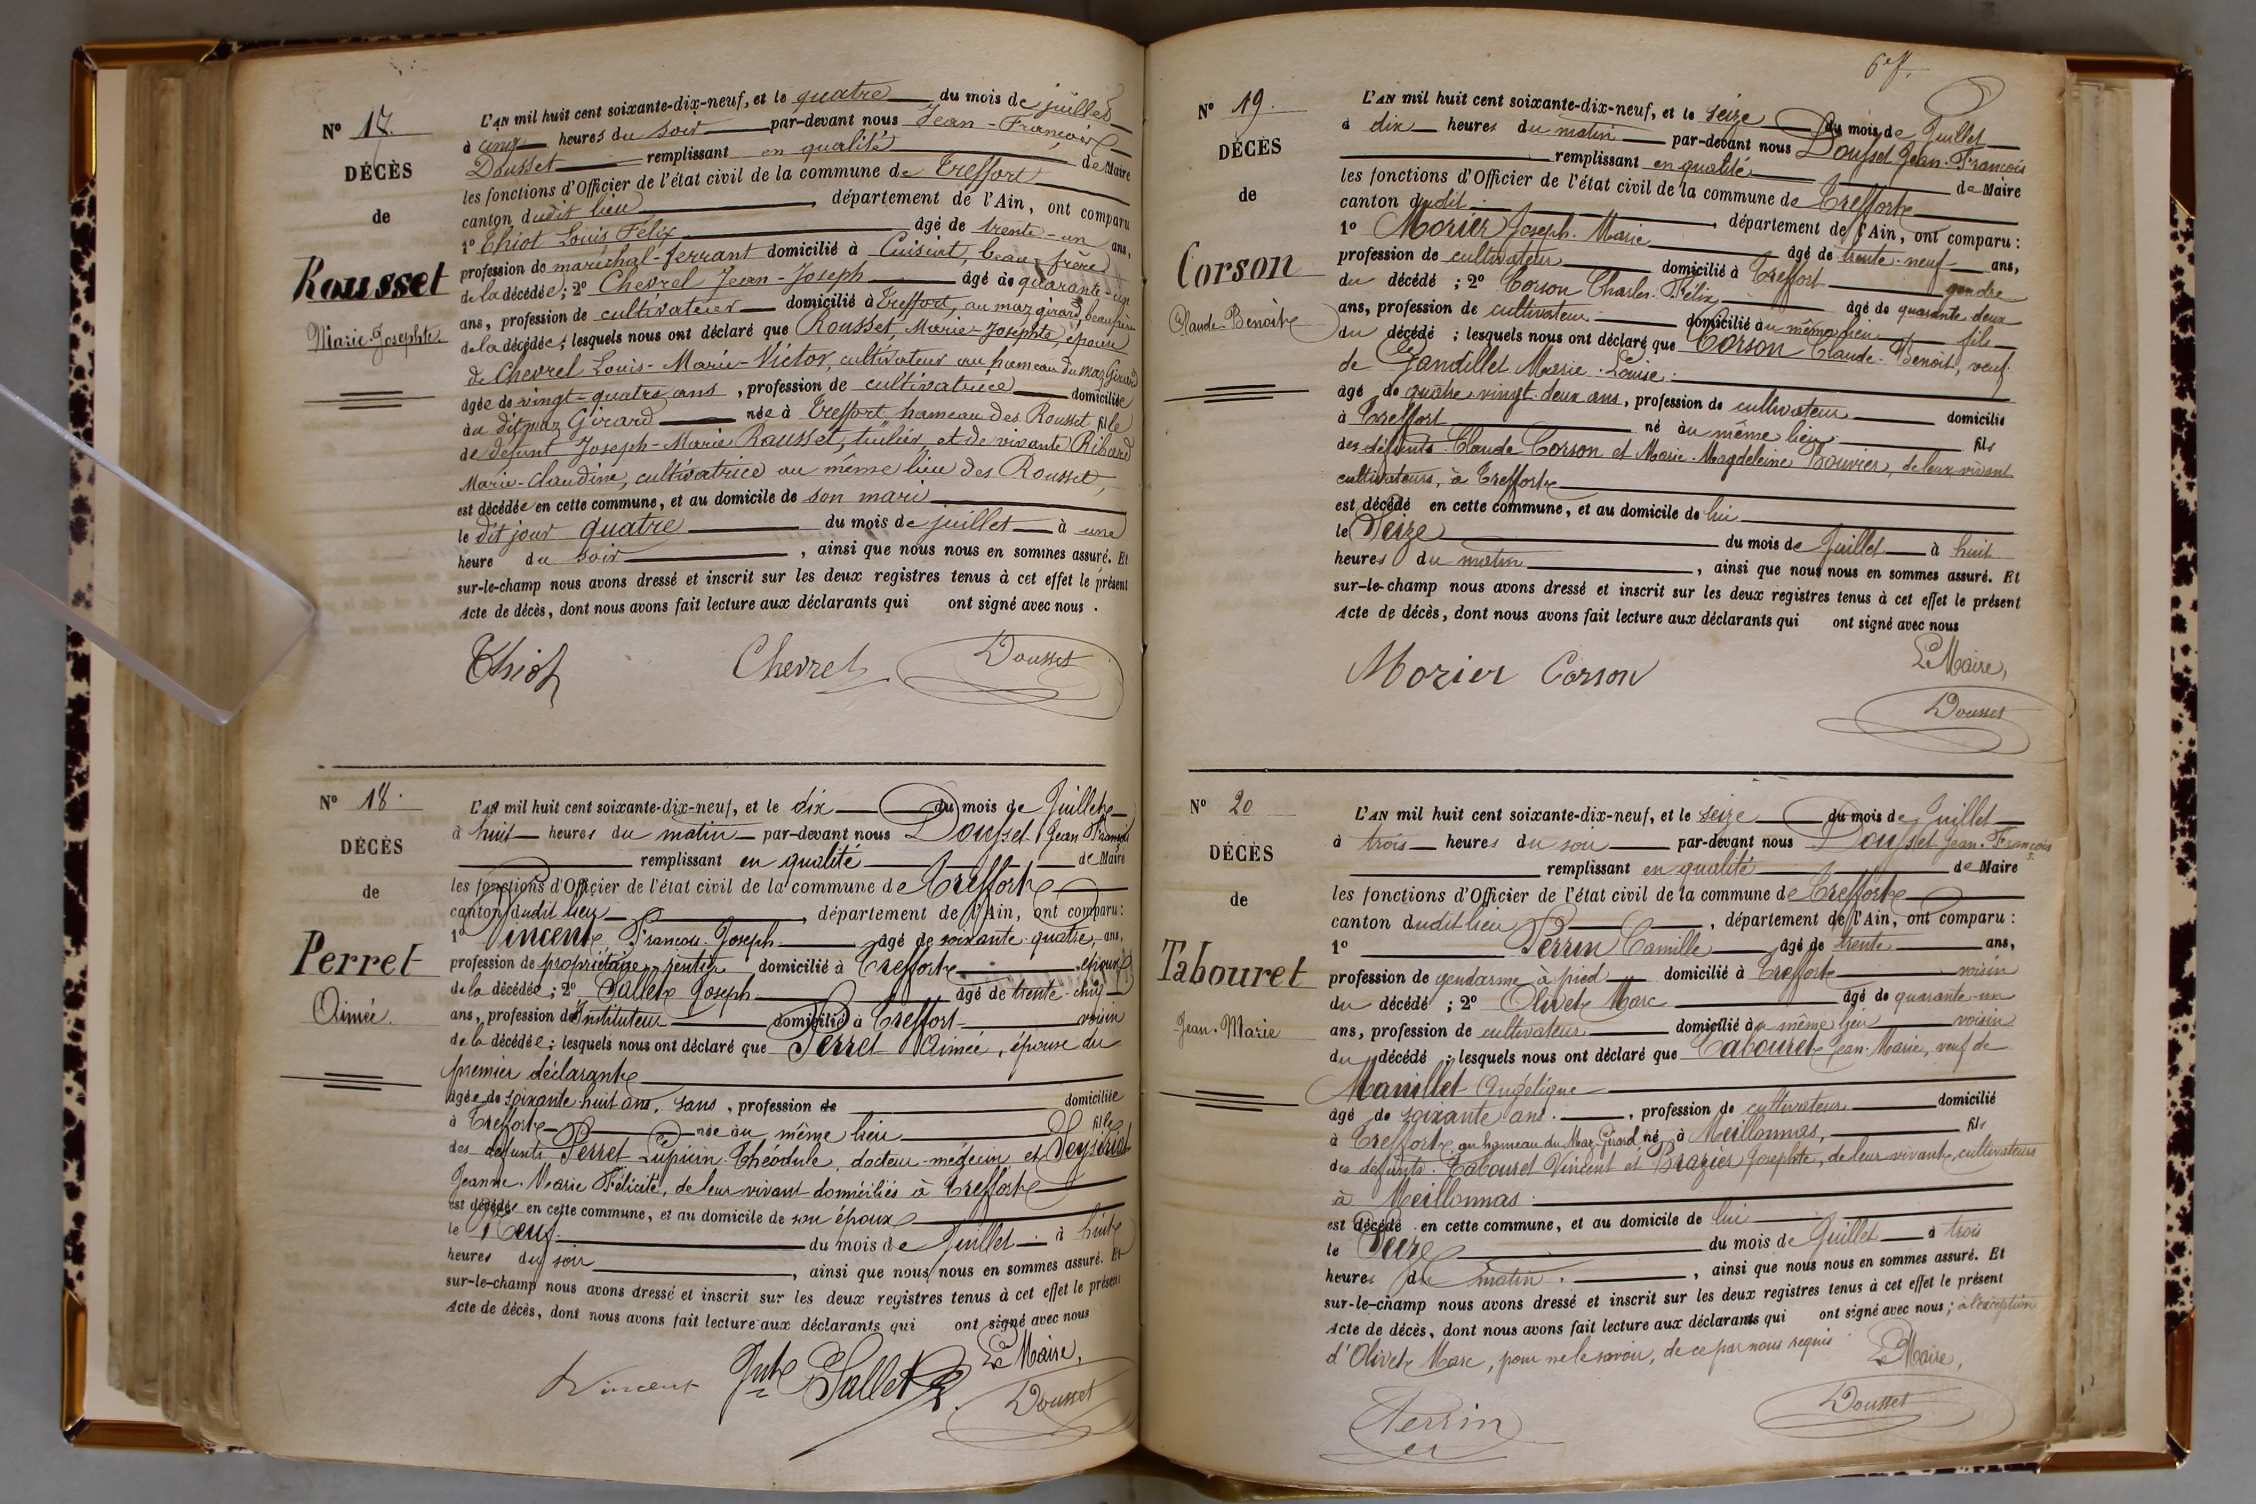 N° 17.
DÉCÈS
de
Rousset
Marie-Josephte
L'AN mil huit cent soixante-dix-neuf, et le quatre du mois de juillet
à cinq heures du soir par-devant nous Jean-François
Dousset remplissant en qualité de Maire
les fonctions d'Officier de l'état civil de la commune de Treffort
canton dudit lieu, département de l'Ain, ont comparu
1° Thiot Louis Félix âgé de trente-un ans,
profession de maréchal-ferrant domicilié à Cuisiat, beau-frère
de la décédée; 2° Chevrel Jean-Joseph âgé de quarante-un
ans, profession de cultivateur domicilié à Treffort, au maz girard, beau-frère
de la décédée; lesquels nous ont déclaré que Rousset, Marie-Josephte, épouse
de Chevrel Louis-Marie-Victor, cultivateur au hameau du maz Girard
âgée de vingt-quatre ans, profession de cultivatrice domiciliée
au dit maz Girard née à Treffort, hameau des Rousset, fille
de défunt Joseph-Marie Rousset, tuilier, et de vivante Ribard
Marie-Claudine, cultivatrice au même lieu des Rousset,
est décédée en cette commune, et au domicile de son mari
le dit jour quatre du mois de juillet à une
heure du soir, ainsi que nous nous en sommes assuré. Et
sur-le-champ nous avons dressé et inscrit sur les deux registres tenus à cet effet le présent
Acte de décès, dont nous avons fait lecture aux déclarants qui ont signé avec nous.
Thiot Chevrel Dousset
N° 18.
DÉCÈS
de
Perret
Aimée.
L'AN mil huit cent soixante-dix-neuf, et le dix du mois de Juillet
à huit heures du matin par-devant nous Dousset Jean François
remplissant en qualité de Maire
les fonctions d'Officier de l'état civil de la commune de Treffort
canton dudit lieu, département de l'Ain, ont comparu:
1° Vincent François-Joseph âgé de soixante-quatre ans,
profession de propriétaire rentier domicilié à Treffort époux
de la décédée; 2° Sallet Joseph âgé de trente-cinq
ans, profession d'Instituteur domicilié à Treffort voisin
de la décédée; lesquels nous ont déclaré que Perret Aimée, épouse du
premier déclarant
âgée de soixante-huit ans, sans, profession de domiciliée
à Treffort née au même lieu fille
des défunts Perret Lupicin-Théodule, docteur-médecin et Deyseriat
Jeanne-Marie Félicité, de leur vivant domiciliés à Treffort
est décédée en cette commune, et au domicile de son époux
le Neuf du mois de Juillet à huit
heures du soir, ainsi que nous nous en sommes assuré. Et
sur-le-champ nous avons dressé et inscrit sur les deux registres tenus à cet effet le présent
Acte de décès, dont nous avons fait lecture aux déclarants qui ont signé avec nous
Le Maire,
Vincent Sallet Dousset
N° 19.
DÉCÈS
de
Corson
Claude-Benoît
L'AN mil huit cent soixante-dix-neuf, et le seize du mois de Juillet
à dix heures du matin par-devant nous Dousset Jean-François
remplissant en qualité de Maire
les fonctions d'Officier de l'état civil de la commune de Treffort
canton dudit, département de l'Ain, ont comparu:
1° Morier Joseph-Marie âgé de trente-neuf ans,
profession de cultivateur domicilié à Treffort gendre
du décédé; 2° Corson Charles-Félix âgé de quarante deux
ans, profession de cultivateur domicilié au même lieu fils
du décédé; lesquels nous ont déclaré que Corson Claude-Benoît, veuf
de Gandillet Marie-Louise.
âgé de quatre-vingt-deux ans, profession de cultivateur domicilié
à Treffort né au même lieu fils
des défunts Claude Corson et Marie-Magdeleine Bouvier, de leur vivant
cultivateurs, à Treffort
est décédé en cette commune, et au domicile de lui
le Seize du mois de Juillet à huit
heures du matin, ainsi que nous nous en sommes assuré. Et
sur-le-champ nous avons dressé et inscrit sur les deux registres tenus à cet effet le présent
Acte de décès, dont nous avons fait lecture aux déclarants qui ont signé avec nous
Le Maire,
Morier Corson
Dousset
N° 20
DÉCÈS
de
Tabouret
Jean-Marie
L'AN mil huit cent soixante-dix-neuf, et le seize du mois de Juillet
à trois heures du soir par-devant nous Dousset Jean-François
remplissant en qualité de Maire
les fonctions d'Officier de l'état civil de la commune de Treffort
canton dudit lieu, département de l'Ain, ont comparu:
1° Perrin Camille âgé de trente ans,
profession de gendarme à pied domicilié à Treffort voisin
du décédé; 2° Olivet Marc âgé de quarante-un
ans, profession de cultivateur domicilié au même lieu voisin
du décédé; lesquels nous ont déclaré que Tabouret Jean-Marie, veuf de
Manillet Angélique
âgé de soixante ans, profession de cultivateur domicilié
à Treffort, au hameau du Maz-Girard né à Meillonnas, fils
des défunts Tabouret Vincent et Brazier Josephte, de leur vivant, cultivateurs
à Meillonnas.
est décédé en cette commune, et au domicile de lui
le Seize du mois de Juillet à trois
heures du matin, ainsi que nous nous en sommes assuré. Et
sur-le-champ nous avons dressé et inscrit sur les deux registres tenus à cet effet le présent
Acte de décès, dont nous avons fait lecture aux déclarants qui ont signé avec nous; à l'exception
d'Olivet Marc, pour ne le savoir, de ce par nous requis
Le Maire,
Perrin Dousset